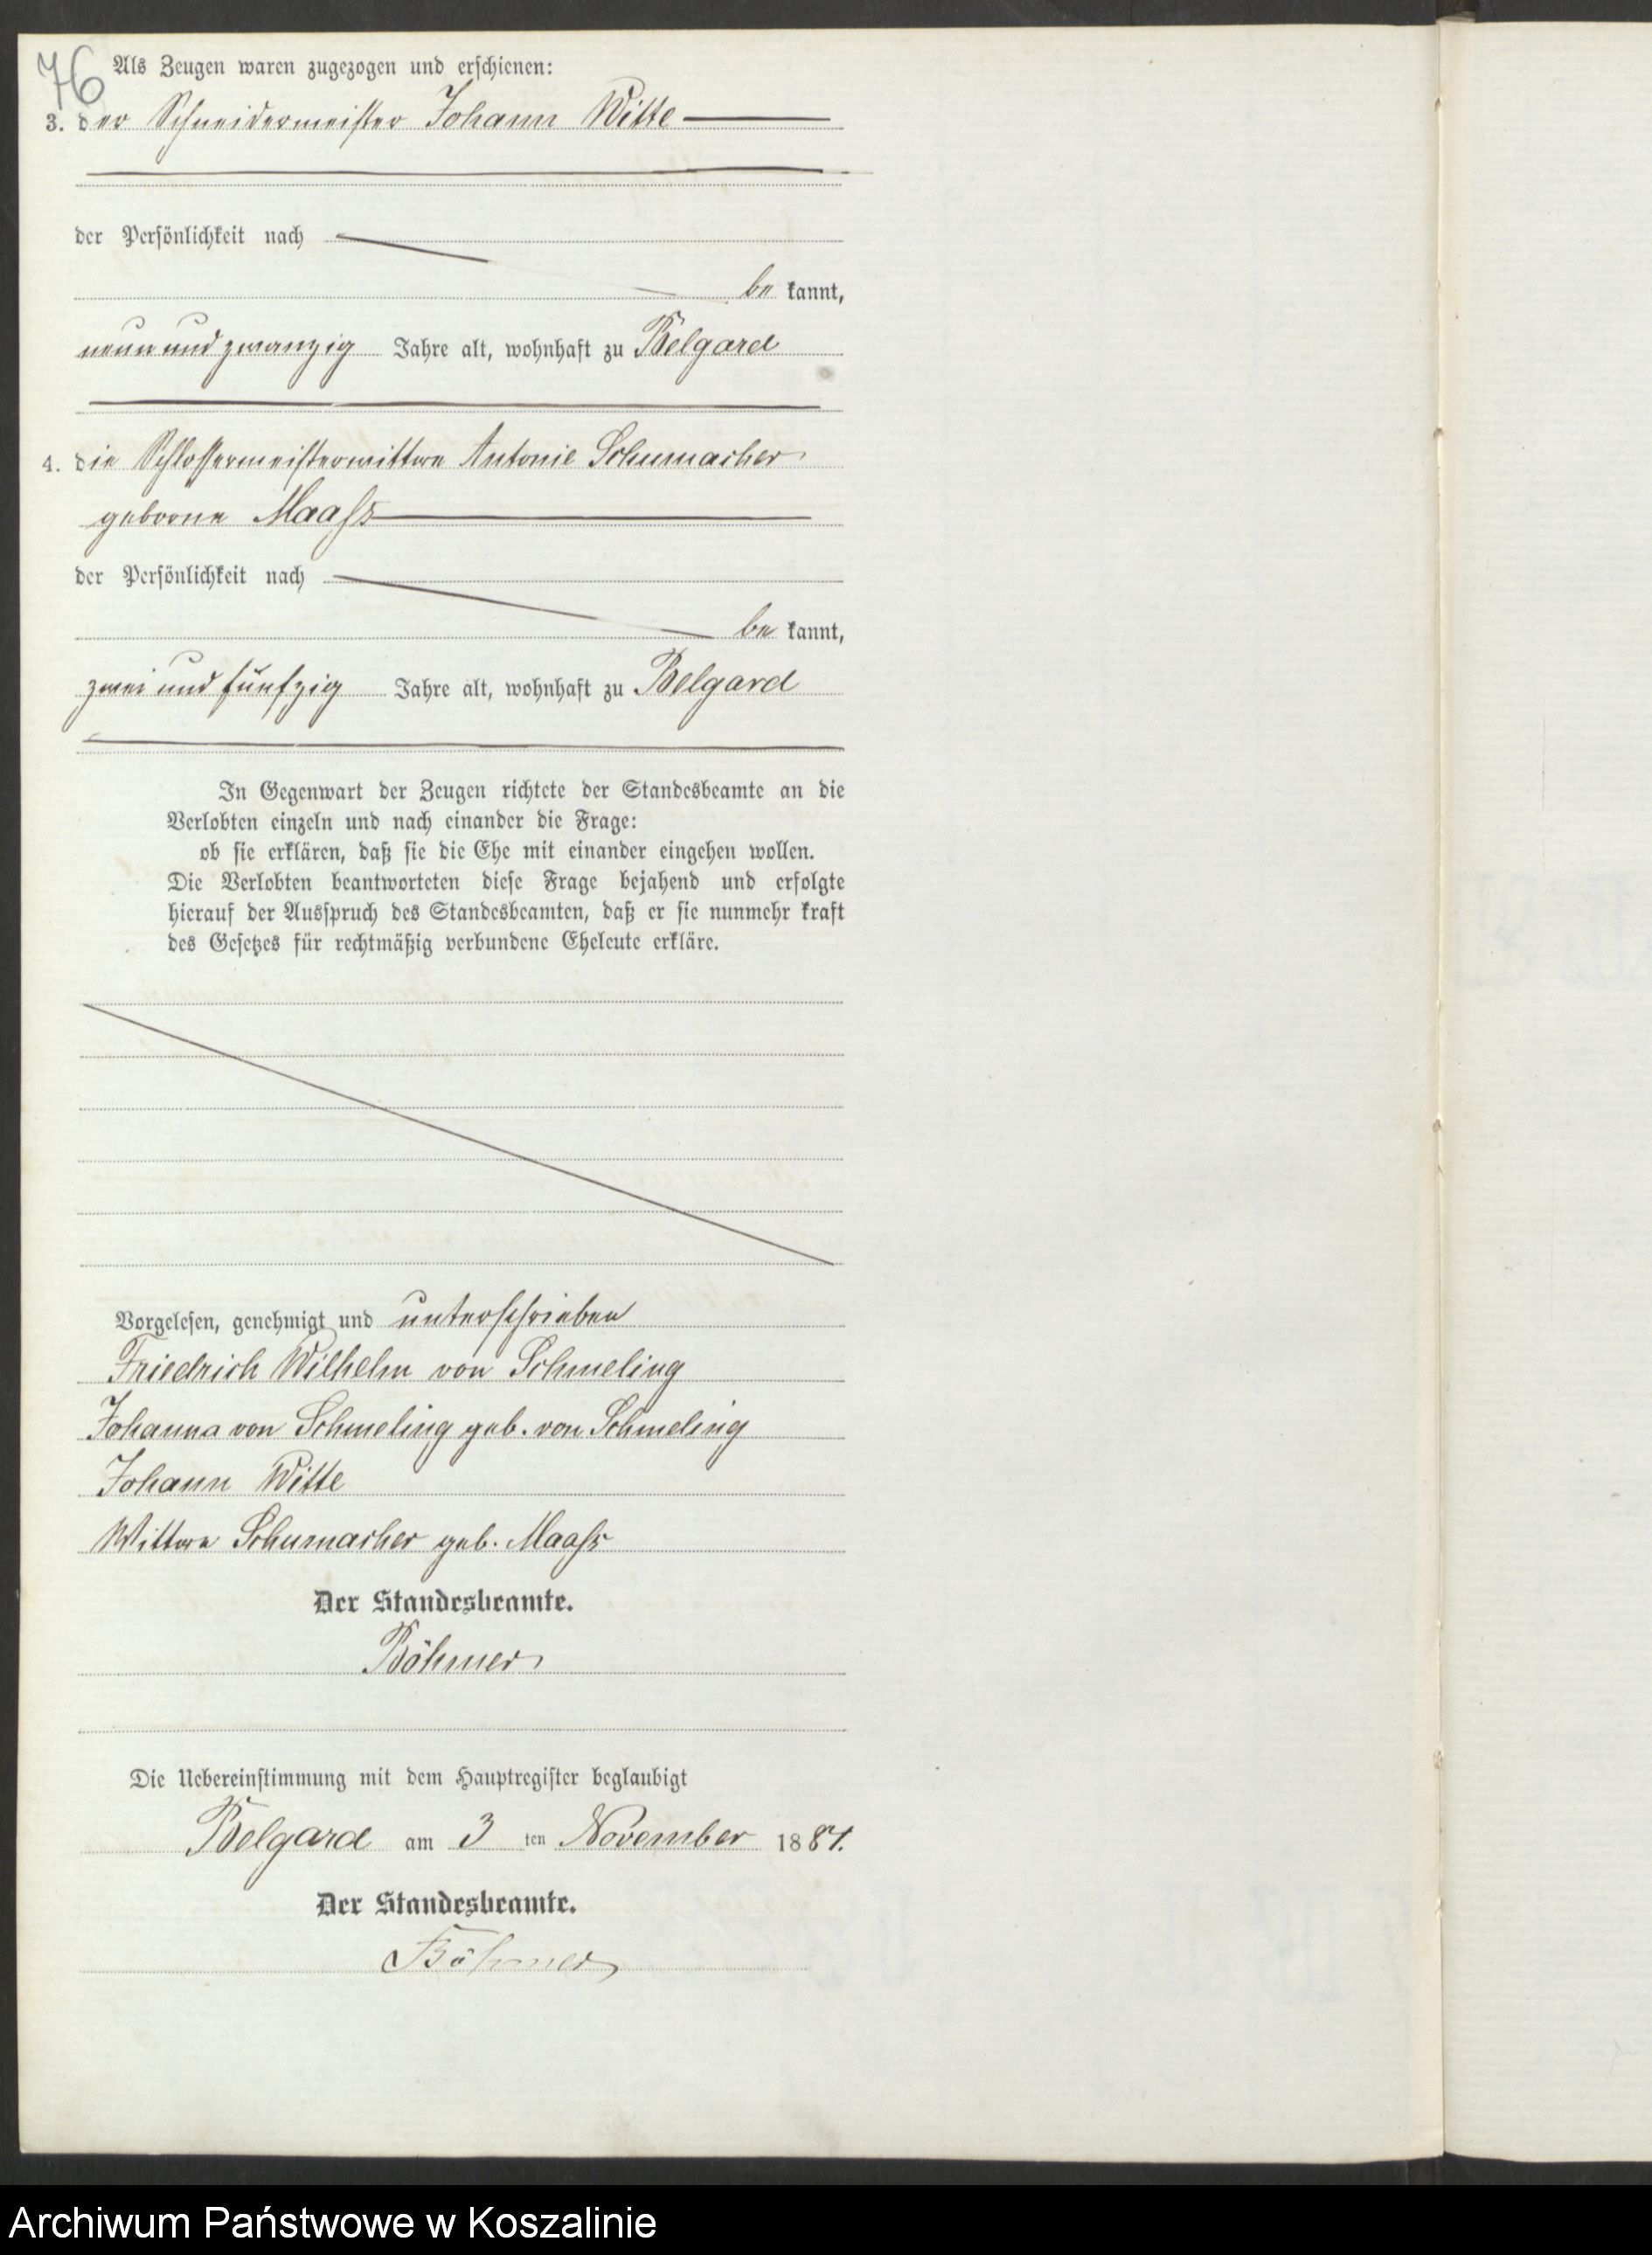 76
Als Zeugen waren zugezogen und erschienen:
3. der Schneidermeister Johann Witte
der Persönlichkeit nach
be kannt,
neun und zwanzig Jahre alt, wohnhaft zu Belgard
4. die Schlossermeisterwittwe Antonie Schumacher
geborne Maaß
der Persönlichkeit nach
be kannt,
zwei und fünfzig Jahre alt, wohnhaft zu Belgard
In Gegenwart der Zeugen richtete der Standesbeamte an die
Verlobten einzeln und nach einander die Frage:
ob sie erklären, daß sie die Ehe mit einander eingehen wollen.
Die Verlobten beantworteten diese Frage bejahend und erfolgte
hierauf der Ausspruch des Standesbeamten, daß er sie nunmehr kraft
des Gesetzes für rechtmäßig verbundene Eheleute erkläre.
Vorgelesen, genehmigt und unterschrieben
Friedrich Wilhelm von Schmeling
Johanna von Schmeling geb. von Schmeling
Johann Witte
Wittwe Schumacher geb. Maaß
Der Standesbeamte.
Böhmer
Die Uebereinstimmung mit dem Hauptregister beglaubigt
Belgard am 3 ten November 1881.
Der Standesbeamte.
Böhmer
Archiwum Państwowe w Koszalinie